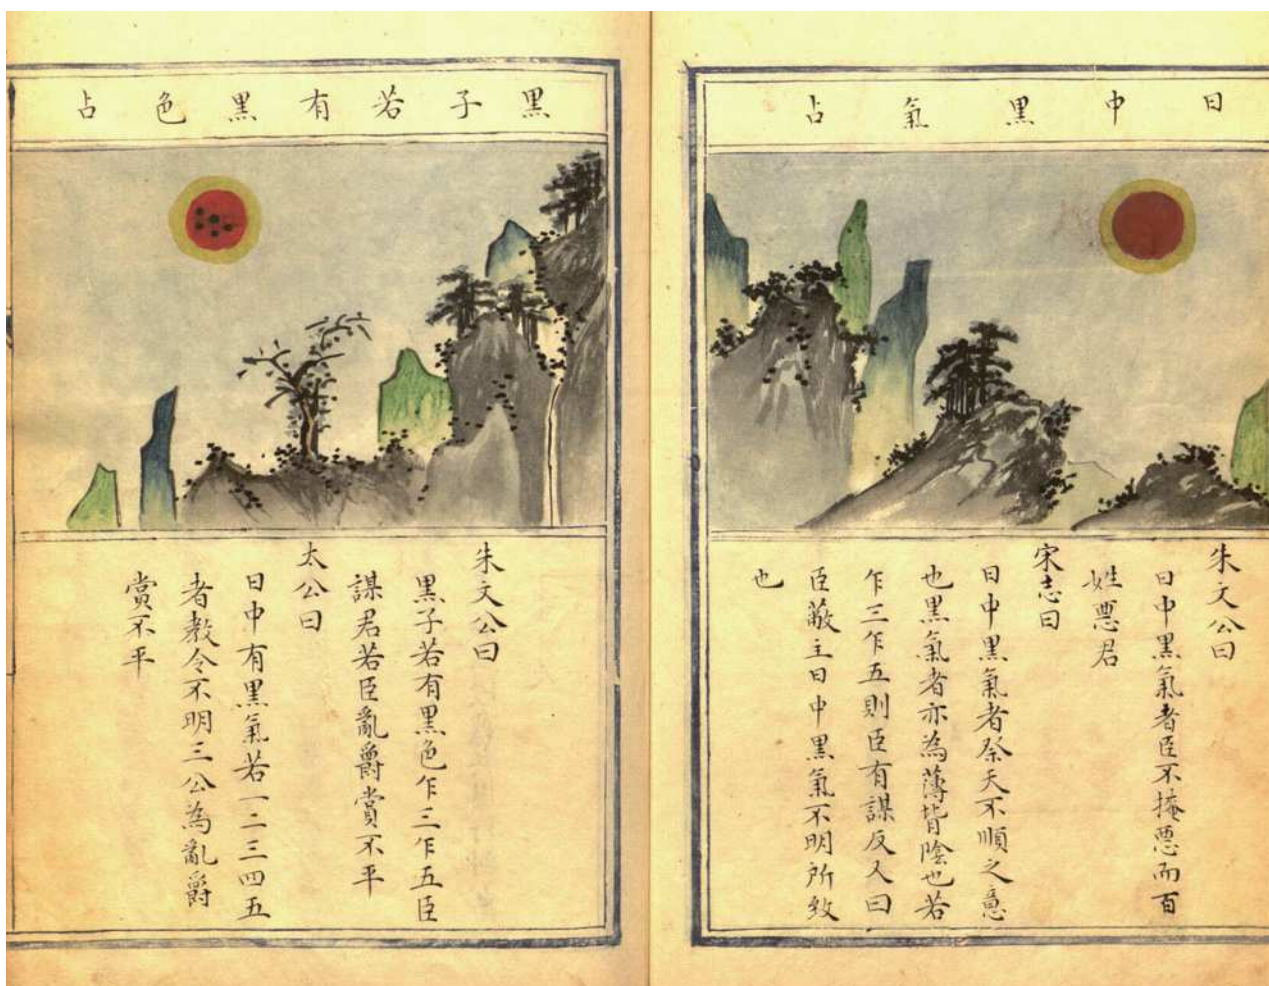 日中黑氣占
朱文公曰
日中黑氣者臣不掩惡而百
姓惡君
宋志曰
日中黑氣者祭天不順之意
也黑氣者亦為薄皆陰也若
乍三乍五則臣有謀反又曰
臣蔽主日中黑氣不明所致
也
黑子若有黑色占
朱文公曰
黑子若有黑色乍三乍五臣
謀君若臣亂爵賞不平
太公曰
日中有黑氣若一二三四五
者教令不明三公為亂爵
賞不平